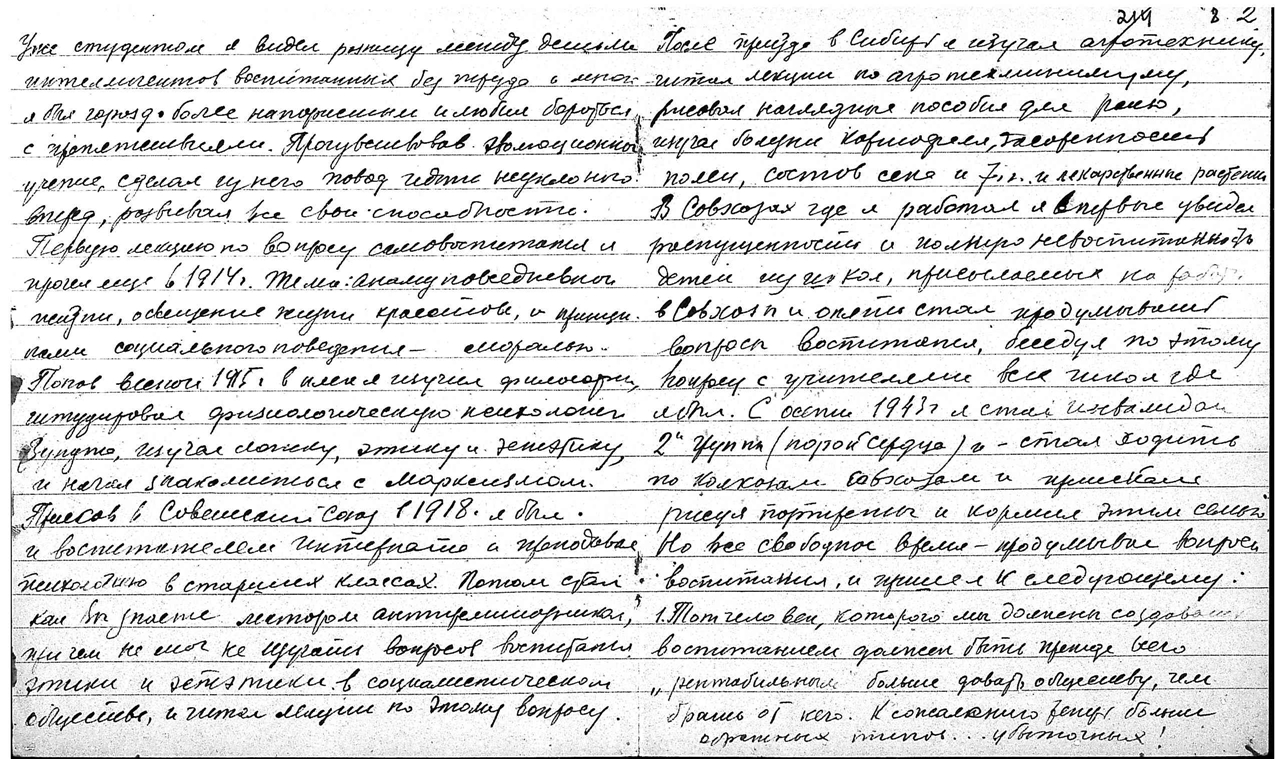 219 8. 2
Уже студентом я видел разницу между детьми
интеллигентов воспитанных без труда и мной
я был гораздо более напористым и любил бороться
с препятствиями. Прочувствовав эволюционное
учение, сделал из него повод идти неуклонно
вперед, развивая все свои способности.
Первую лекцию по вопросу самовоспитания я
прочел еще в 1914г. Тема: повседневной
жизни, освещение жизни красотою, и принци-
пами социального поведения – моралью.
Потом весной 1915г. в плену я изучил философию,
штудировал физиологическую психологию
Вундта, изучал логику, этику и эстетику,
и начал знакомиться с Марксизмом.
Приехав в Советский Союз в 1918. я был
и воспитателем Интерната и преподавал
психологию в старших классах. Потом стал
как Вы знаете лектором антирелигиозником,
при чем не мог не изучать вопросов воспитания
этики и эстетики в социалистическом
обществе, и читал лекции по этому вопросу.
После приезда в Сибирь я изучал агротехнику,
читал лекции по агротехминимуму,
рисовал наглядные пособия для
изучал болезни картофеля, засоренность
полей, состав сена и т.д. и лекарственные растения
В Совхозах где я работал я впервые увидел
распущенность и полную невоспитанность
детей из школ, присылаемых на работу
в Совхозы и опять стал продумывать
вопросы воспитания, беседуя по этому
вопросу с учителями всех школ где
я был. С осени 1943г я стал инвалидом
2й группы (порок сердца) и – стал ходить
по колхозам совхозам и приискам
рисуя портреты и кормил этим семью
Но все свободное время – продумывал вопросы
воспитания, и пришел к следующему:
1. Тот человек, которого мы должны создавать
воспитанием должен быть прежде всего
„рентабильным больше давать обществу, чем
брать от него. К сожалению больше
обратных типов... убыточных!